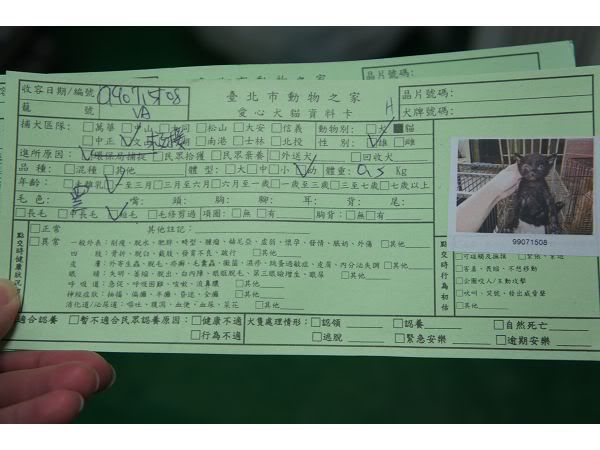 臺北市動物之家
愛心犬貓資料卡
收容日期/編號 99071508
籠 號
晶片號碼:
晶片號碼:
犬牌號碼:
捕犬區隊: □萬華 □中山 □松山 □大安 □信義 動物別: ■貓
□中正 □南港 □士林 □北投 性別: 雄 □雌
進所原因: 環保局捕捉 □民眾拾獲 □民眾棄養 □外送犬 □回收犬
品種: □混種 □其他 體型: □大 □中 □小 幼 體重: 0.5 Kg
年齡: 未離乳 至三月 □三月至六月 □六月至一歲 □一歲至三歲 □三歲至七歲 □七歲以上
毛色: 黑 嘴: 頭: 胸: 腳: 耳: 背: 尾:
□長毛 □中長毛 短毛 □毛修剪過 項圈: □無 □有 胸背: □無 □有
點交時健康狀況
□正常 其他註記:
□異常 一般外表: 削瘦、脫水、肥胖、畸型、腫瘤、赫尼亞、虛弱、懷孕、發情、脹奶、外傷 □其他
四 肢: 骨折、脫臼、截肢、發育不良、跛行 □其他
皮 膚: 外寄生蟲、脫毛、疥癬、毛囊蟲、黴菌、濕疹、跳蚤過敏症、皮屑、內分泌失調 □其他
眼 睛: 失明、萎縮、脫出、白內障、眼瞼脫毛、第三眼瞼增生、眼屎 □其他
呼吸道: 急促、呼吸困難、咳嗽、流鼻膿 □其他
神經症狀: 抽搐、偏癱、半癱、昏迷、全癱 □其他
消化道/泌尿道: 嘔吐、腹瀉、血便、血尿、菜花 □其他
點交時行為初估
□害羞、畏縮、不想移動
□企圖咬人/主動攻擊
□吠叫、哭號、發出威脅聲
□其他
99071508
適合認養 □暫不適合民眾認養原因: □健康不適 犬隻處理情形: □認領 □認養 □自然死亡
□行為不適 □逃脫 □緊急安樂 □逾期安樂